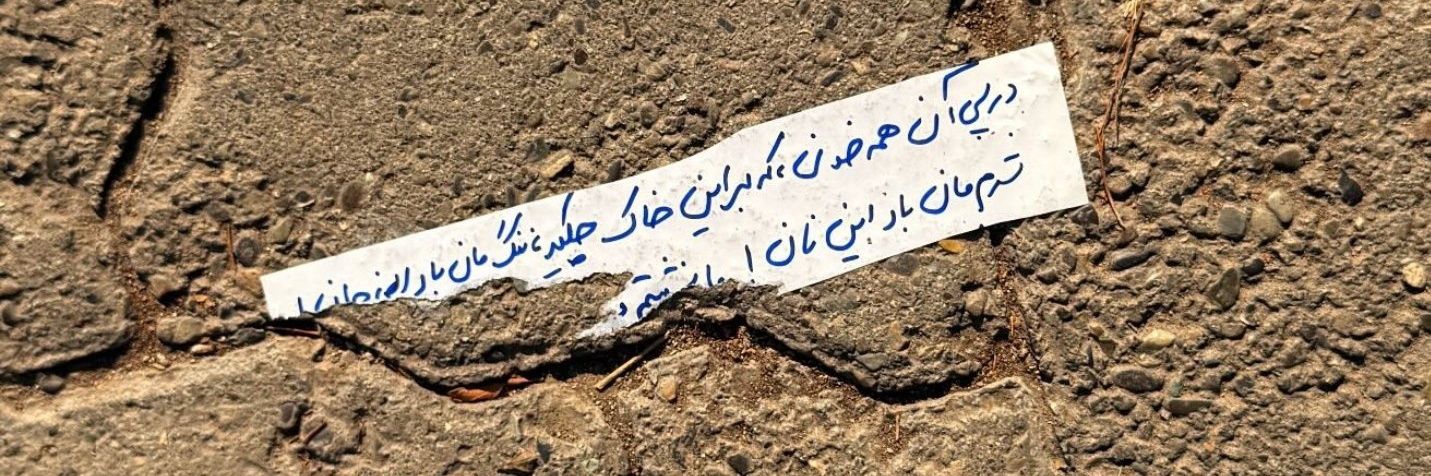 در پی آن همه خون ، که بر این خاک چکید ، ننگ مان باد این جان
شرم مان باد این نان ! ما نشستیم و